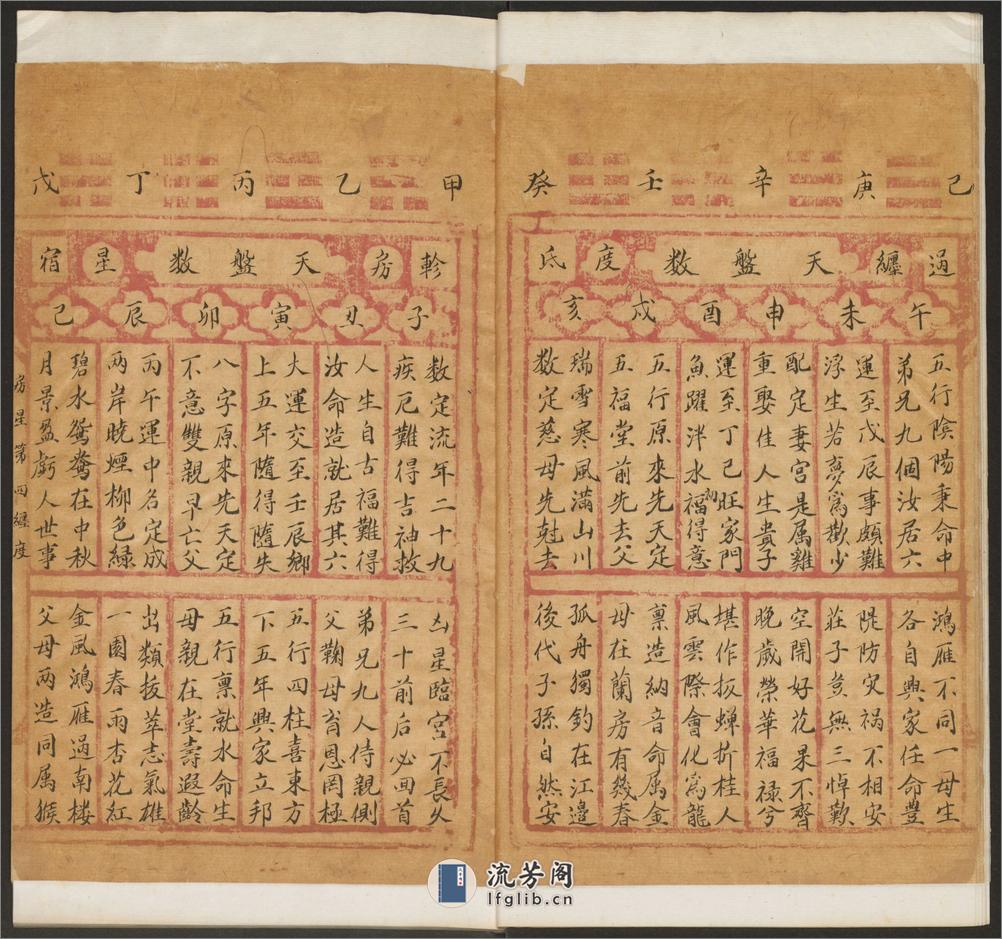 己庚辛壬癸
過纏天盤数度氐
午未申酉戌亥
五行陰陽秉命中
弟兄九個汝居六
運至戊辰事頗難
浮生若夢爲歡少
配定妻宮是属雞
重娶佳人生貴子
運至丁已旺家門
魚躍泮水福初得意
五行原來先天定
五福堂前先去父
瑞雪寒風滿山川
数定慈母先尅去
鴻雁不同一母生
各自興家任命豐
隄防灾禍不相安
莊子豈無三悼歎
空開好花果不齊
晚歲榮華福禄兮
堪作扳蟬折桂人
風雲際會化爲龍
禀造納音命属金
母在蘭房有幾春
孤舟獨釣在江邊
後代子孫自然安
甲乙丙丁戊
軫房天盤数星宿
子丑寅卯辰己
数定流年二十九
疾厄難得吉神救
人生自古福難得
汝命造就居其六
大運交至壬辰鄉
上五年隨得隨失
八字原來先天定
不意雙親早亡父
丙午運中名定成
兩岸曉煙柳色緑
碧水鴛鴦在中秋
月景盈虧人世事
凶星臨宮不長久
三十前后必回首
弟兄九人侍親側
父鞠母育恩罔極
五行四柱喜東方
下五年興家立邦
五行禀就水命生
母親在堂壽遐齡
出類拔萃志氣雄
一園春雨杏花紅
金風鴻雁過南楼
父母两造同属猴
房星第四纏度
流芳阁
lfglib.cn